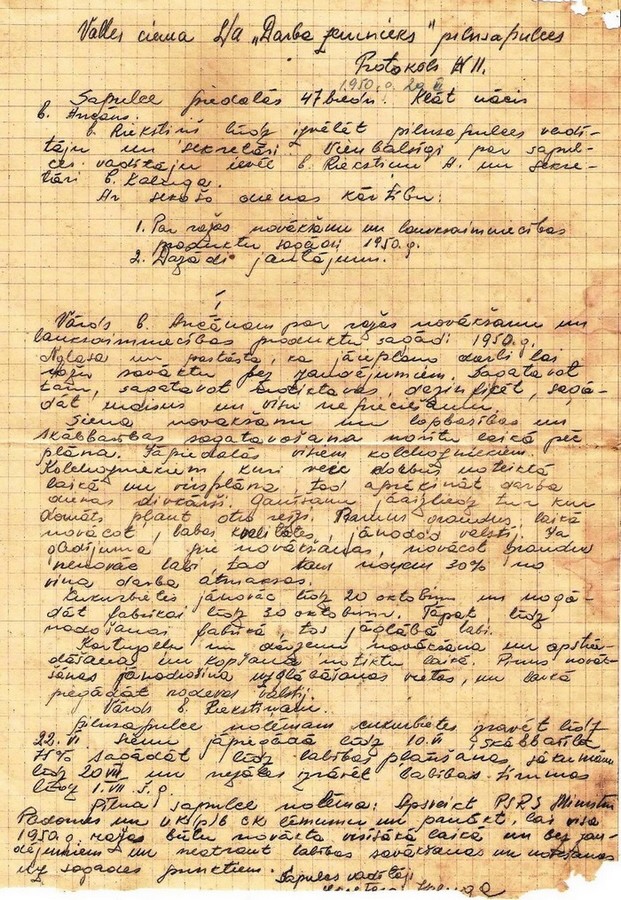 Valles ciema L/a „Darba zemnieks" pilnsapulces
Protokols № 11.
1950.g. 29.
Sapulcē piedalās 47 biedri. Klāt nācis
b. Ancāns.
b. Riekstiņš lūdz izvēlēt pilnsapulces vadī-
tāju un sekretāri. Vienbalsīgi par sapul-
ces vadītāju ievēl b. Riekstiņu A. un sekre-
tāri b. Kalniņa.
Ar sekošo dienas kārtību:
1. Par ražas novākšanu un lauksaimniecības
produktu sagādi 1950.g.
2. Dažādi jautājumi.
1
Vārds b. Ancānam par ražas novākšanu un
lauksaimniecības produktu sagādi 1950.g.
Nolasa un pastāsta, ka jāieplāno darbi lai
ražu novāktu bez zaudējumiem. Sagatavot
dezinficēt, sagā-
dāt maisus un visu nepieciešamo.
Siena novākšanu un lopbarības un
skābbarības sagatavošana noritu laikā pēc
plāna. Jāpiedalās visiem kolchozniekiem.
Kolchozniekiem kuri veic darbus noteiktā
laikā un virsplāna tad aprēķināt darba
dienas divkārši. Ganīšanu jāaizliedz tur kur
domāts pļaut otru reizi. Pirmos graudus, laikā
novācot, labas kvalitātes, jānodod valstij. Ja
gadījumā pie novākšanas, novācot graudus
nenovāc labi, tad tam noņem 30% no
viņa darba atmaksas.
Cukurbietes jānovāc līdz 20 oktobrim un nogā-
dāt fabrikai līdz 30 oktobrim. Tāpat līdz
nodošanai fabrikā, tos jāglabā labi.
Kartupeļu un dārzeņu novākšana un apstrā-
dāšanas un kopšana notiktu laikā. Pirms novāk-
šanas jānodrošina uzglabāšanas vietas, un laikā
piegādāt nodevas valstij.
Vārds b. Riekstiņam.
Pilnsapulce nolēmam cukurbietes izravēt līdz
22. VI. Sienu jāpiegādā līdz 10. VII, skābbarība
75% sagādāt līdz labības pļaušanas sākumam
līdz 20 VII un nezāles izravēt labības zirnus
līdz 1. VII š.g.
Pilna sapulce nolēma: Apsveikt PSRS Ministru
Padomes un VK(p)b CK lēmumu un panākt, lai visa
1950.g. raža būtu novākta visīsākā laikā un bez zau-
dējumiem un neatraut labības novākšanas un nodošanas
uz sagādes punktiem.
Sapulces vadītājs